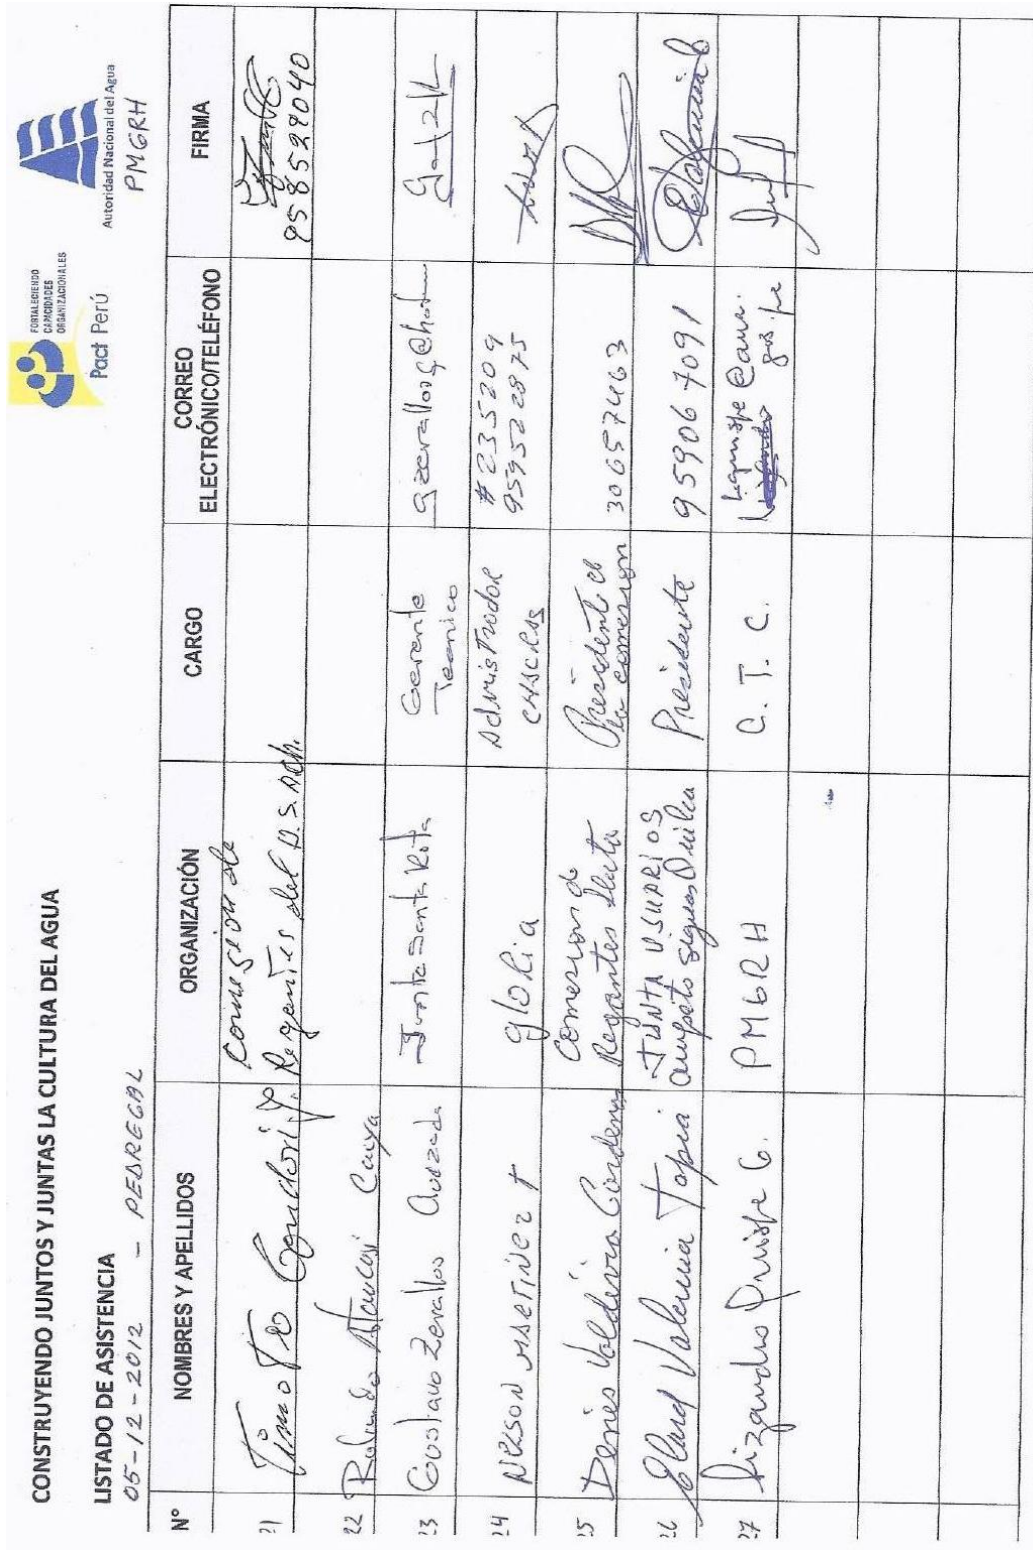 CONSTRUYENDO JUNTOS Y JUNTAS LA CULTURA DEL AGUA
FORTALECIENDO
CAPACIDADES
ORGANIZACIONALES
Pact Perú
Autoridad Nacional del Agua
PMGRH
LISTADO DE ASISTENCIA
05-12-2012 - PEDREGAL
N° NOMBRES Y APELLIDOS ORGANIZACIÓN CARGO CORREO ELECTRÓNICO/TELÉFONO FIRMA
21 Timo Teo Condori Y. comesion de Regantes del D.S. Ach. 958529040
22 Rolando Cayra
23 Gustavo Zevallos Junta Santa Rita Gerente Tecnico
24 Nelson gloria # 235209 959522875
25 Denies Valdivia Cardenas Comesion de Regantes Presidente de la comesion 30657463
26 Elard Valencia Tapia JUNTA USUARIOS Siguas Quilca Presidente 959067091
27 Lizandro Quispe G. PMGRH C. T. C. Lquispe@ana.gob.pe